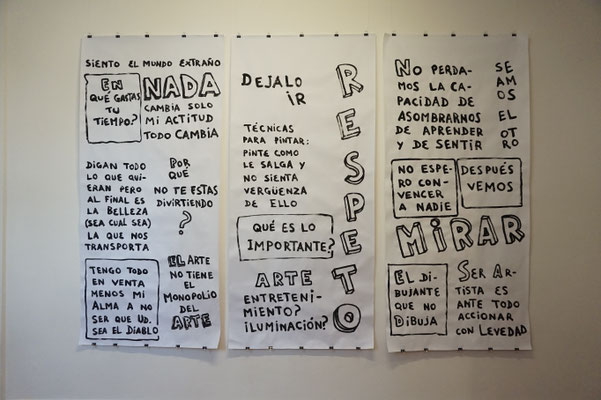 SIENTO EL MUNDO EXTRAÑO
EN
QUÉ GASTAS
TU
TIEMPO?
NADA
CAMBIA SOLO
MI ACTITUD
TODO CAMBIA
DIGAN TODO
LO QUE QUI-
ERAN PERO
AL FINAL ES
LA BELLEZA
(SEA CUAL SEA)
LA QUE NOS
TRANSPORTA
POR
QUÉ
NO TE ESTAS
DIVIRTIENDO
?
TENGO TODO
EN VENTA
MENOS MI
ALMA A NO
SER QUE UD.
SEA EL DIABLO
EL ARTE
NO TIENE
EL
MONOPOLIO
DEL
ARTE
DEJALO
IR
TÉCNICAS
PARA PINTAR:
PINTE COMO
LE SALGA Y
NO SIENTA
VERGÜENZA
DE ELLO
RESPETO
QUÉ ES LO
IMPORTANTE?
ARTE
ENTRETENI-
MIENTO?
ILUMINACIÓN?
NO PERDA-
MOS LA CA-
PACIDAD DE
ASOMBRARNOS
DE APRENDER
Y DE SENTIR
SE
AM
OS
EL
OT
RO
NO ESPE-
RO CON-
VENCER
A NADIE
DESPUÉS
VEMOS
MIRAR
EL DI-
BUJANTE
QUE NO
DIBUJA
SER AR-
TISTA ES
ANTE TODO
ACCIONAR
CON LEVEDAD